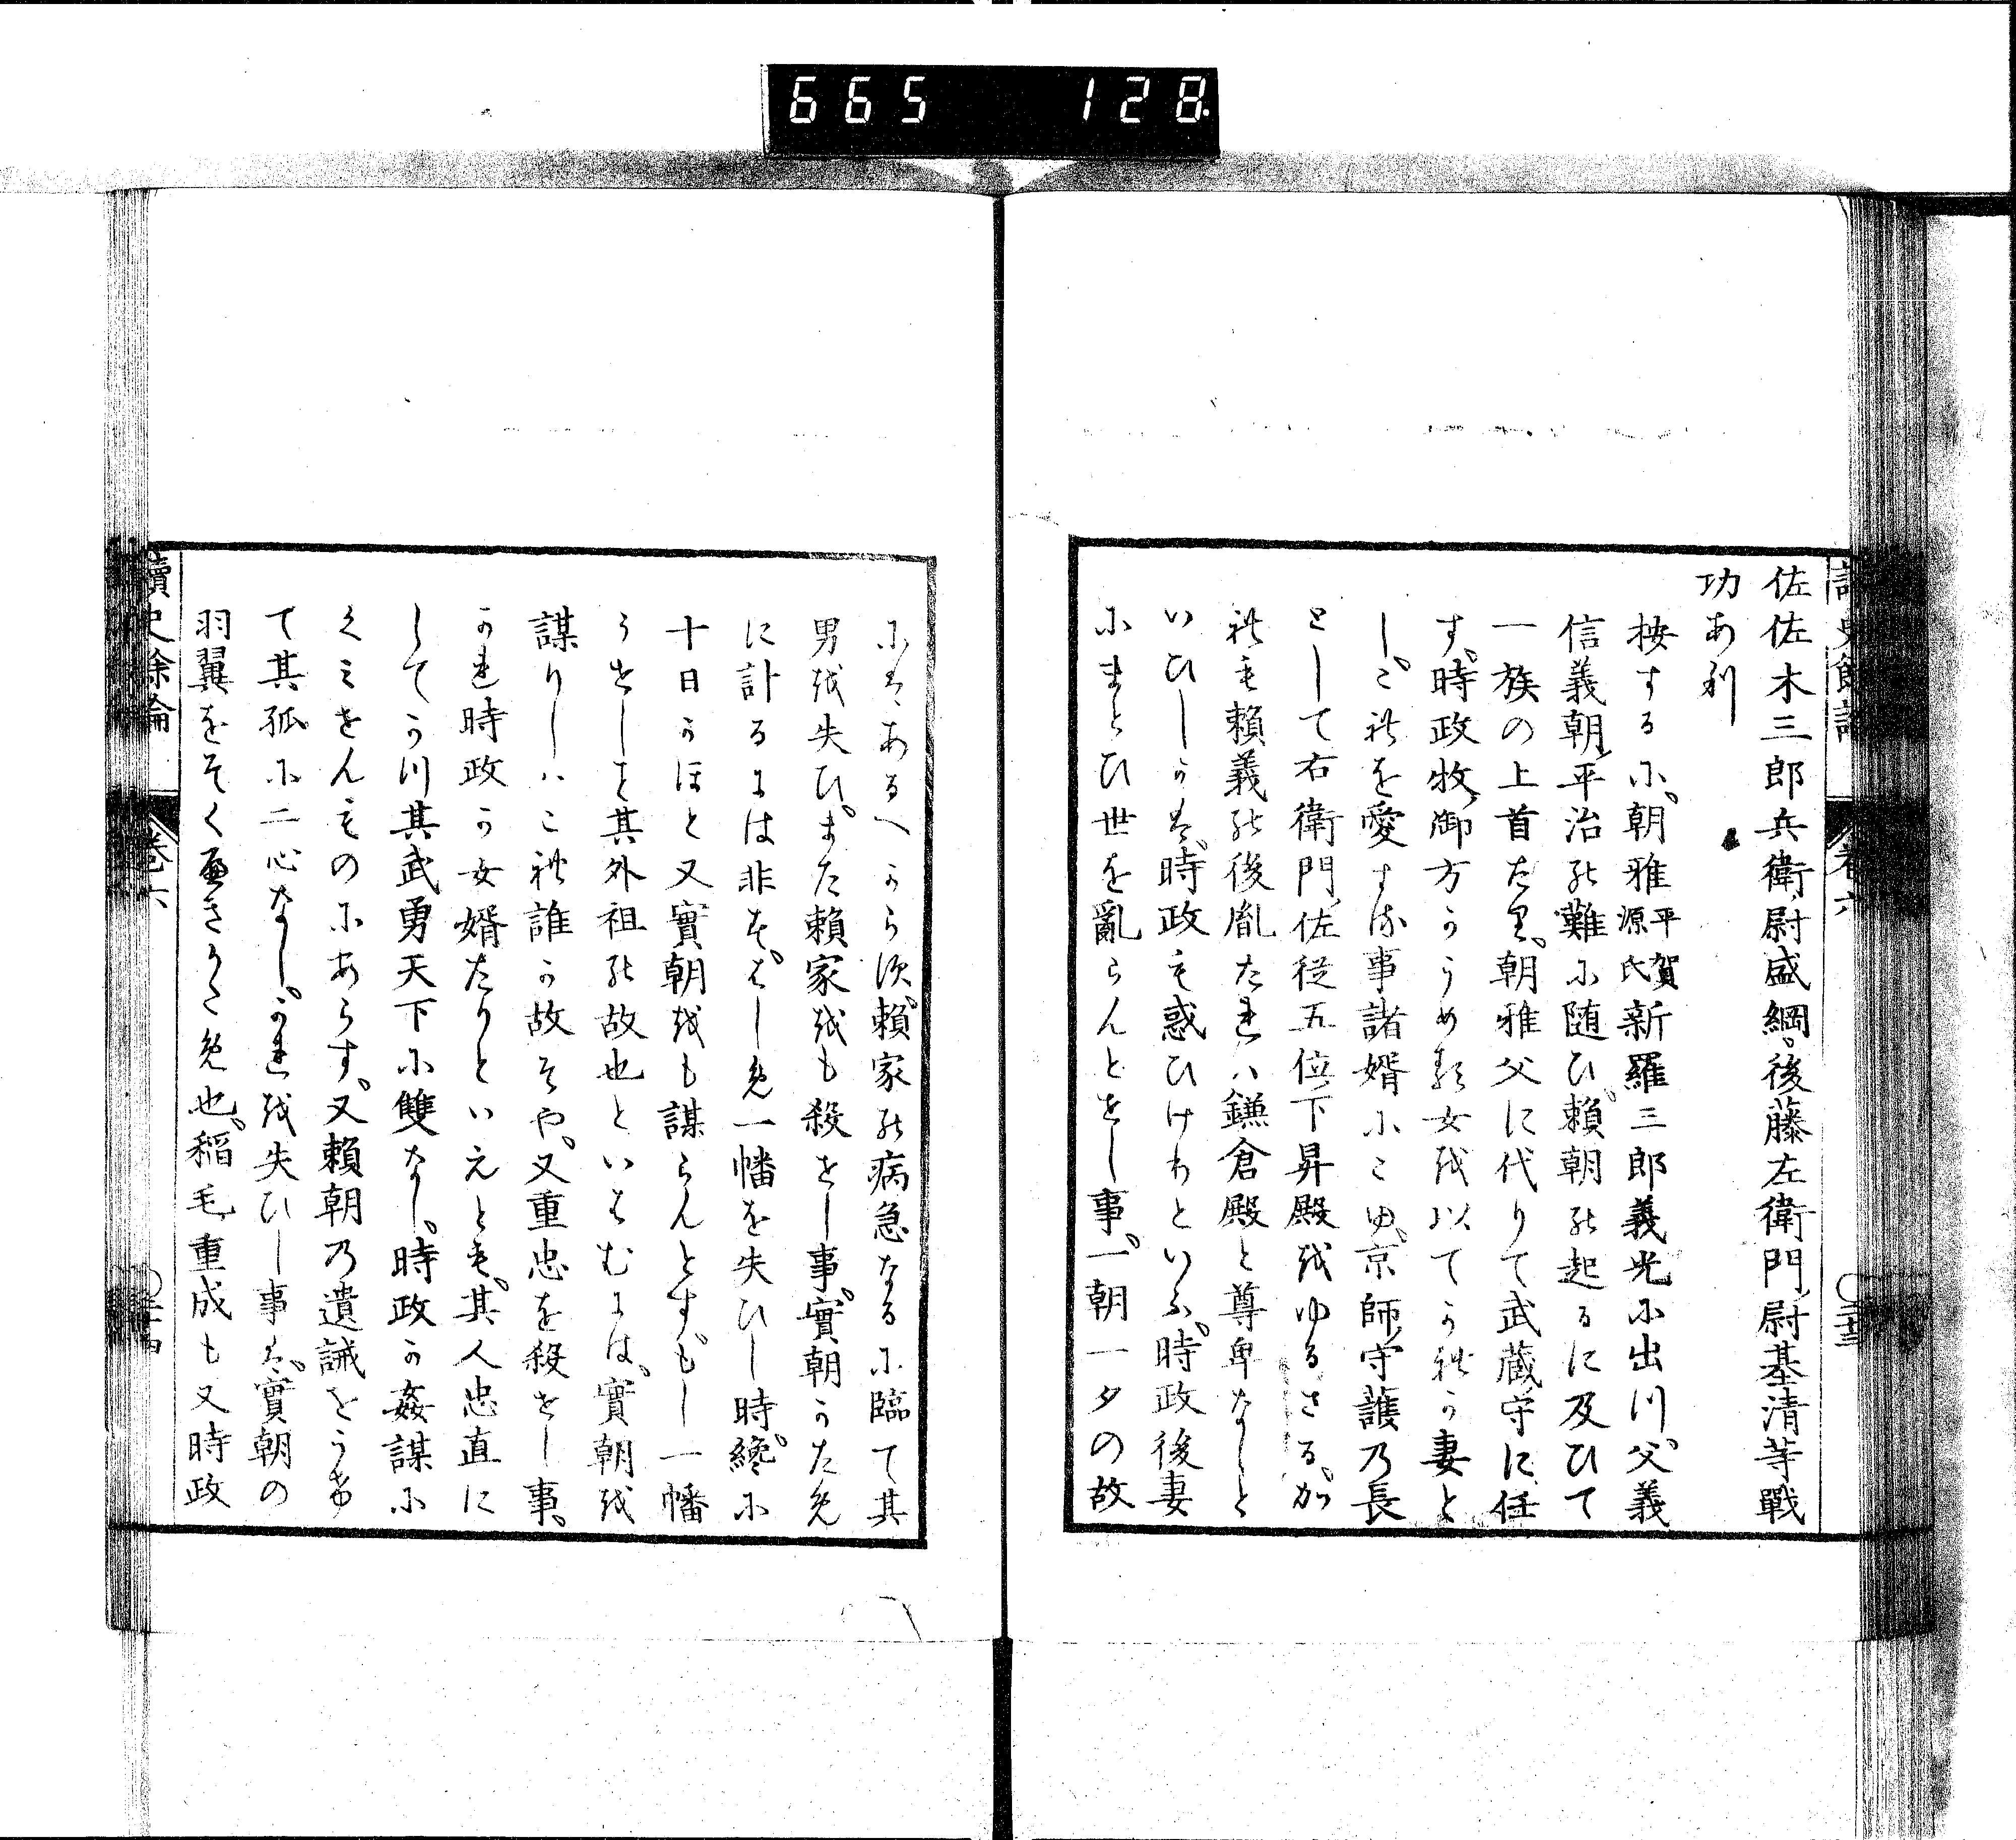 665 128
佐佐木三郎兵衛尉盛綱後藤左衛門尉基清等戰
功あり
按するに朝雅平賀源氏新羅三郎義光に出つ父義
信義朝平治の難に随ひ頼朝の起るに及ひて
一族の上首たり朝雅父に代りて武蔵守に任
す時政牧御方かうめる女を以てかれか妻と
しこれを愛する事諸婿にこゆ京師守護の長
として右衛門佐從五位下昇殿をゆるさるか
れも頼義の後胤たれハ鎌倉殿と尊卑なしと
いひしかは時政も惑ひけりといふ時政後妻
にまとひ世を亂らんとせし事一朝一夕の故
にはあるへからす頼家の病急なるに臨て其
男を失ひまた頼家をも殺せし事實朝かため
に計るには非すはしめ一幡を失ひし時纔に
十日かほと又實朝をも謀らんとすもし一幡
うせしは其外祖の故也といはむには實朝を
謀りしハこれ誰か故そや又重忠を殺せし事
かれ時政か女婿たりといえとも其人忠直に
してかつ其武勇天下に雙なし時政か姦謀に
くみせんものにあらす又頼朝の遺誡をうけ
て其孤に二心なしかれを失ひし事は實朝の
羽翼をそくへきかため也稲毛重成も又時政
讀史餘論 卷六